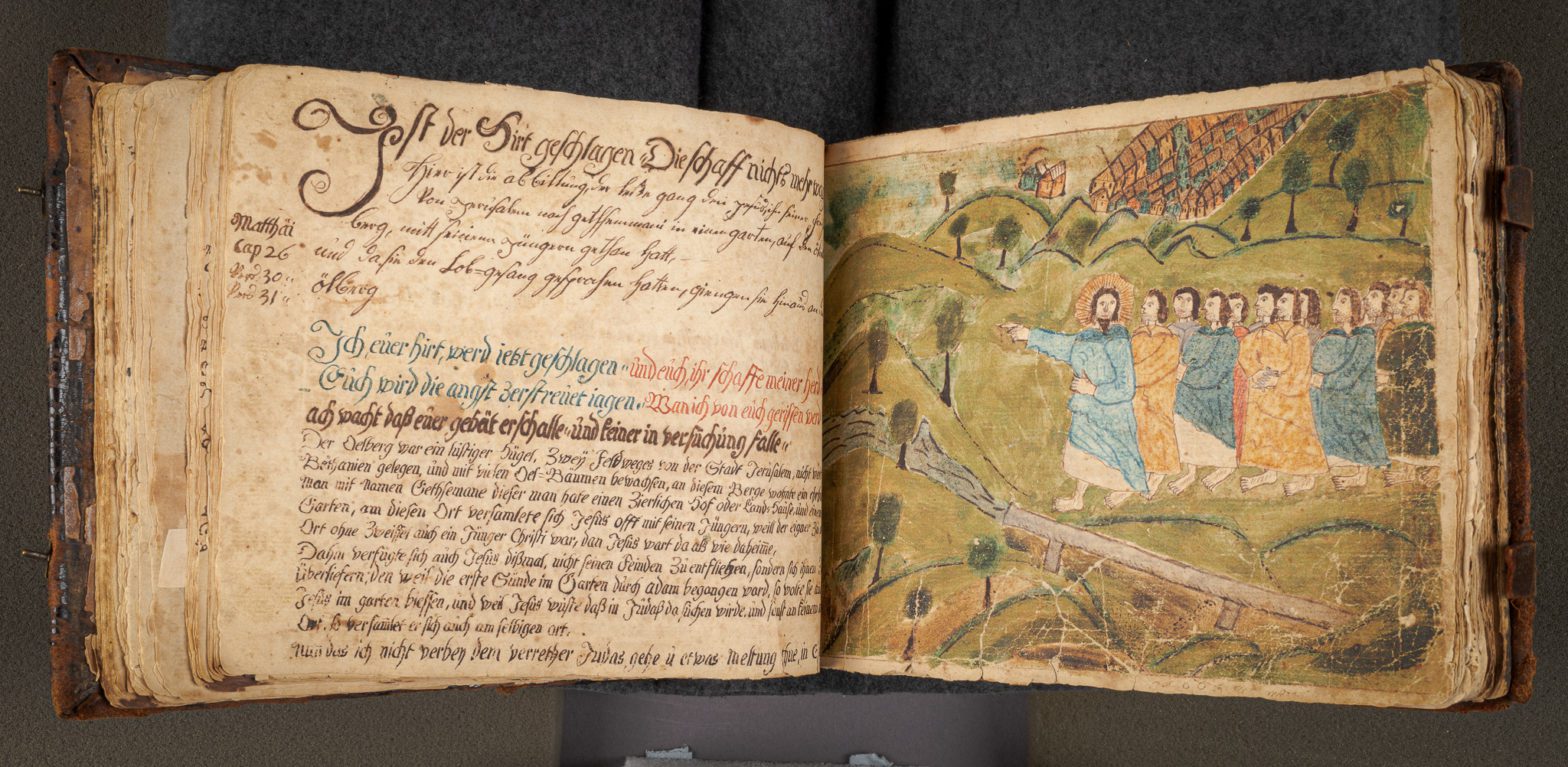 Ist der Hirt geschlagen „ Die schaff nichts mehr
Hier ist die abbildung, der letze gang den Jesus, mit seiner
Von Jerusalem nach gethsemani in einen garten, auf den
berg, mitt seinenn Jüngern gethan hatt,
Matthäi
Cap 26
Vers 30 „
Vers 31 „
und da sie den Lob=gesang gesprochen hatten, giengen sie hinaus an
ölberg
Ich, eüer hirt, werd ietzt geschlagen „ und eüch, ihr schaffe meiner
Eüch wird die angst zerstreüet iagen, Wan ich von eüch gerissen
ach wacht daß eüer gebät erschalle „ und keiner in versüchung falle „
Der Oelberg war ein lüstiger hügel, Zweÿ Feldweges von der Stadt Jerusalem, nicht
Bethanien gelegen, und mit vielen Oel=Bäumen bewachsen, an diesem Berge wohnte ein
man mit Namen Gethsemane dieser man hate einen Zierlichen Hof oder Land=Hause, und einen
Garten, am diesen Ort versamlete sich Jesus offt mit seinen Jüngern, weill der eigner
Ort ohne Zweiffel aüch ein Jünger Christi war, dan Jesus wart da als wie daheime,
Dahin verfügte sich auch Jesus dißmal, nicht seinen Feinden zu entfliehen, sondern sich ihnen
überliefern, den weil die erste Sünde im Garten dürch adam begangen ward, so wolte sie
Jesus im garten büssen, und weil Jesus wüste daß in Jüdaß da süchen wirde, und sonst an keinem
Ort, so versamlet er sich auch am selbigen ort.
Nun das ich nicht verbeÿ dem verrether Judas gehe ü etwas meltung thue, in